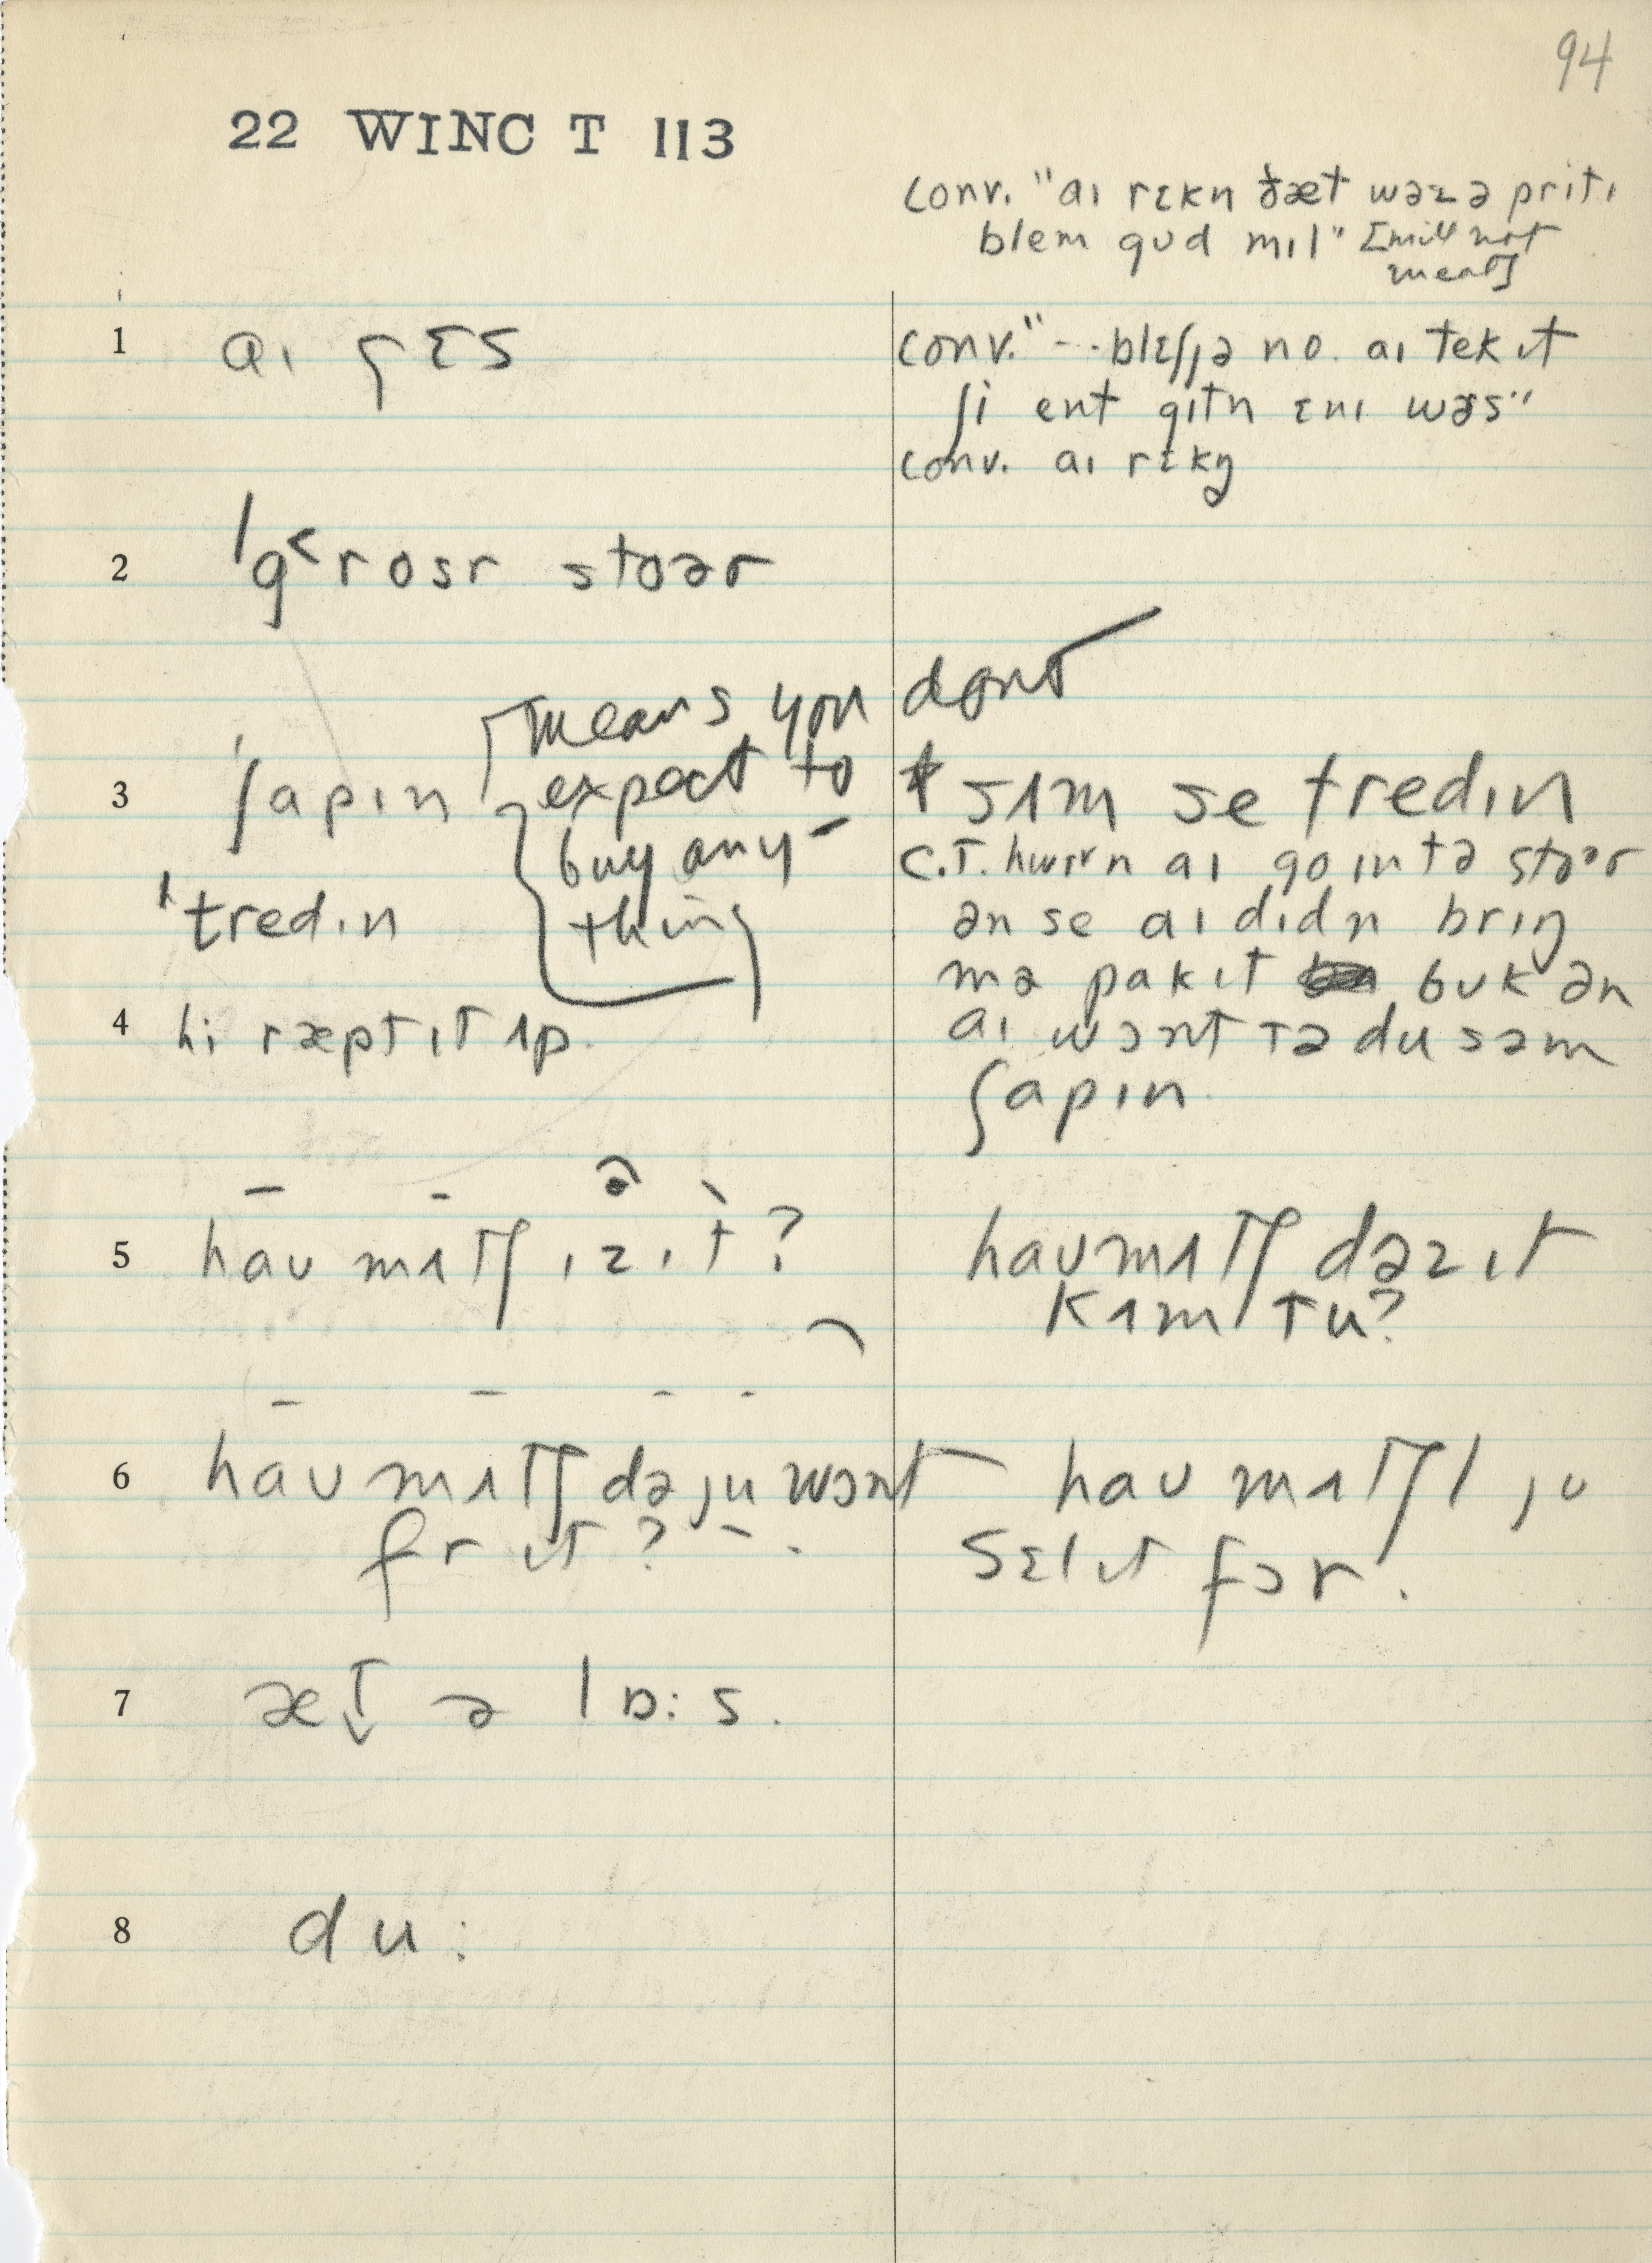 94
22 WINC T 113
conv. "aɪ rɛkn ðæt wəz ə prɪtɪ
blem gud mɪl" [mill not
meal]
1 aɪ gɛs
conv. "--blɛʃjə no. aɪ tek ɪt
ʃi ent gɪtn ɛnɪ wəs"
conv. aɪ rɛkŋ
2 ˈg˂rosr stoər
means you dont
3 ˈʃapɪn expect to
buy any-
ˈtredɪn thing
sʌm se tredɪn
C.T. hwɛn aɪ go ɪn tə stoər
ən se aɪ dɪdn brɪŋ
mə pakɪt buk ən
4 hi ræpt ɪt ʌp.
aɪ wɔnt tə du səm
ʃapɪn.
5 hau mʌtʃ ɪz ɪt?
hau mʌtʃ dəz ɪt
kʌm tu?
6 hau mʌtʃ də ju wɔnt
fr ɪt?
hau mʌtʃ l ju
sɛl ɪt fɔr.
7 æt̬ ə lɒ:s.
8 du: